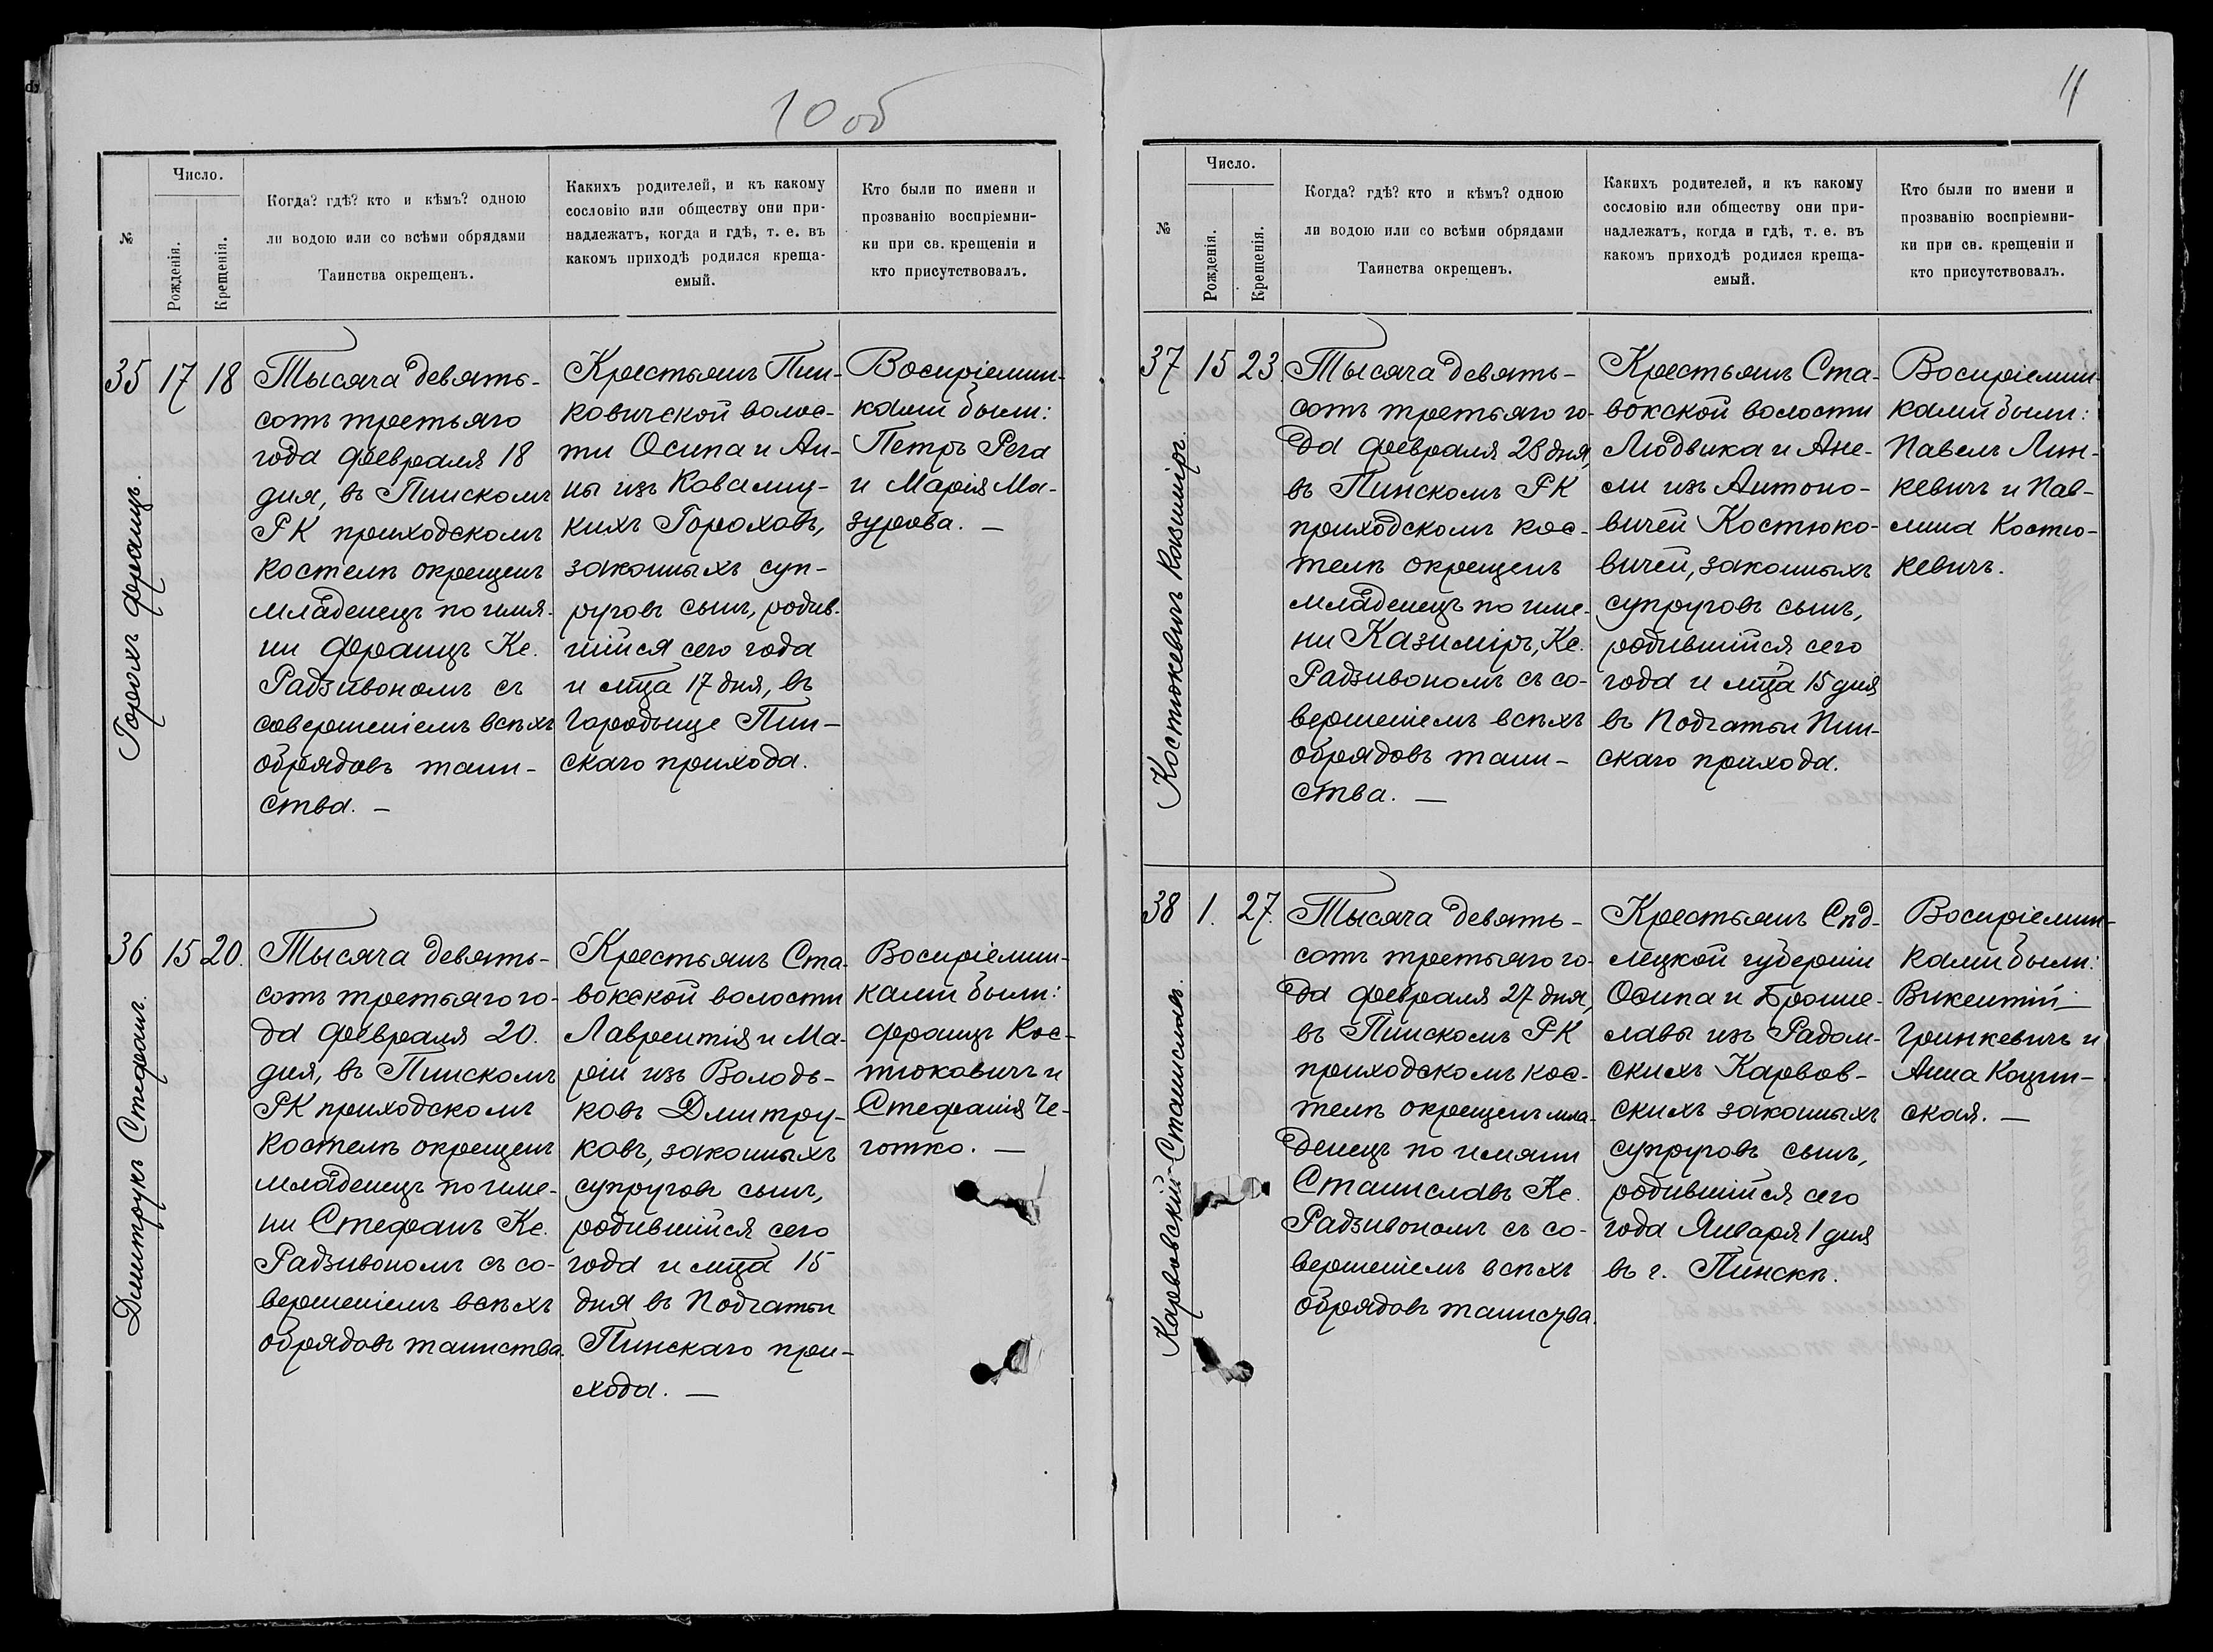 10 об
№
Число.
Рожденія.
Крещенія.
Когда? гдѣ? кто и кѣмъ? одною
ли водою или со всѣми обрядами
Таинства окрещенъ.
Какихъ родителей, и къ какому
сословію или обществу они при-
надлежатъ, когда и гдѣ, т. е. въ
какомъ приходѣ родился креща-
емый.
Кто были по имени и
прозванію воспріемни-
ки при св. крещеніи и
кто присутствовалъ.
35 17 18
Горохъ Францъ.
Тысяча девять-
сотъ третьяго
года февраля 18
дня, въ Пинскомъ
РК приходскомъ
костелѣ окрещенъ
младенецъ по имя-
ни Францъ Кс.
Радзивономъ съ
совершеніемъ всѣхъ
обрядовъ таин-
ства. —
Крестьянъ Пин-
ковичской волос-
ти Осипа и Ан-
ны изъ Ковалиц-
кихъ Гороховъ,
законныхъ суп-
руговъ сынъ, родив-
шійся сего года
и мца 17 дня, въ
Городыще Пин-
скаго прихода.
Воспріемни-
ками были:
Петръ Рега
и Марія Ма-
зурова. —
36 15 20.
Дмитрукъ Стефанъ.
Тысяча девять-
сотъ третьяго го-
да февраля 20.
дня, въ Пинскомъ
РК приходскомъ
костелѣ окрещенъ
младенецъ по име-
ни Стефанъ Кс.
Радзивономъ съ со-
вершеніемъ всѣхъ
обрядовъ таинства.
Крестьянъ Ста-
вокской волости
Лаврентія и Ма-
ріи изъ Володь-
ковъ Дмитру-
ковъ, законныхъ
супруговъ сынъ,
родившійся сего
года и мца 15
дня въ Подгатьи
Пинскаго при-
хода. —
Воспріемни-
ками были:
Францъ Кос-
тюковичъ и
Стефанія Че-
готко. —
11
№
Число.
Рожденія.
Крещенія.
Когда? гдѣ? кто и кѣмъ? одною
ли водою или со всѣми обрядами
Таинства окрещенъ.
Какихъ родителей, и къ какому
сословію или обществу они при-
надлежатъ, когда и гдѣ, т. е. въ
какомъ приходѣ родился креща-
емый.
Кто были по имени и
прозванію воспріемни-
ки при св. крещеніи и
кто присутствовалъ.
37 15 23.
Костюкевичъ Казиміръ.
Тысяча девять-
сотъ третьяго го-
да февраля 23 дня,
въ Пинскомъ РК
приходскомъ кос-
телѣ окрещенъ
младенецъ по име-
ни Казиміръ, Кс.
Радзивономъ съ со-
вершеніемъ всѣхъ
обрядовъ таин-
ства. —
Крестьянъ Ста-
вокской волости
Людвика и Ане-
ли изъ Антоно-
вичей Костюко-
вичей, законныхъ
супруговъ сынъ,
родившійся сего
года и мца 15 дня
въ Подгатьи Пин-
скаго прихода.
Воспріемни-
ками были:
Павелъ Лин-
кевичъ и Пав-
лина Костю-
кевичъ.
38 1. 27.
Карвовскій Станиславъ.
Тысяча девять-
сотъ третьяго го-
да февраля 27 дня,
въ Пинскомъ РК
приходскомъ кос-
телѣ окрещенъ мла-
денецъ по имяни
Станиславъ Кс.
Радзивономъ съ со-
вершеніемъ всѣхъ
обрядовъ таинства.
Крестьянъ Сѣд-
лецкой губерніи
Осипа и Броне-
славы изъ Радом-
скихъ Карвов-
скихъ законныхъ
супруговъ сынъ,
родившійся сего
года Января 1 дня
въ г. Пинскѣ.
Воспріемни-
ками были:
Викентій
Гринкевичъ и
Анна Коцин-
ская. —